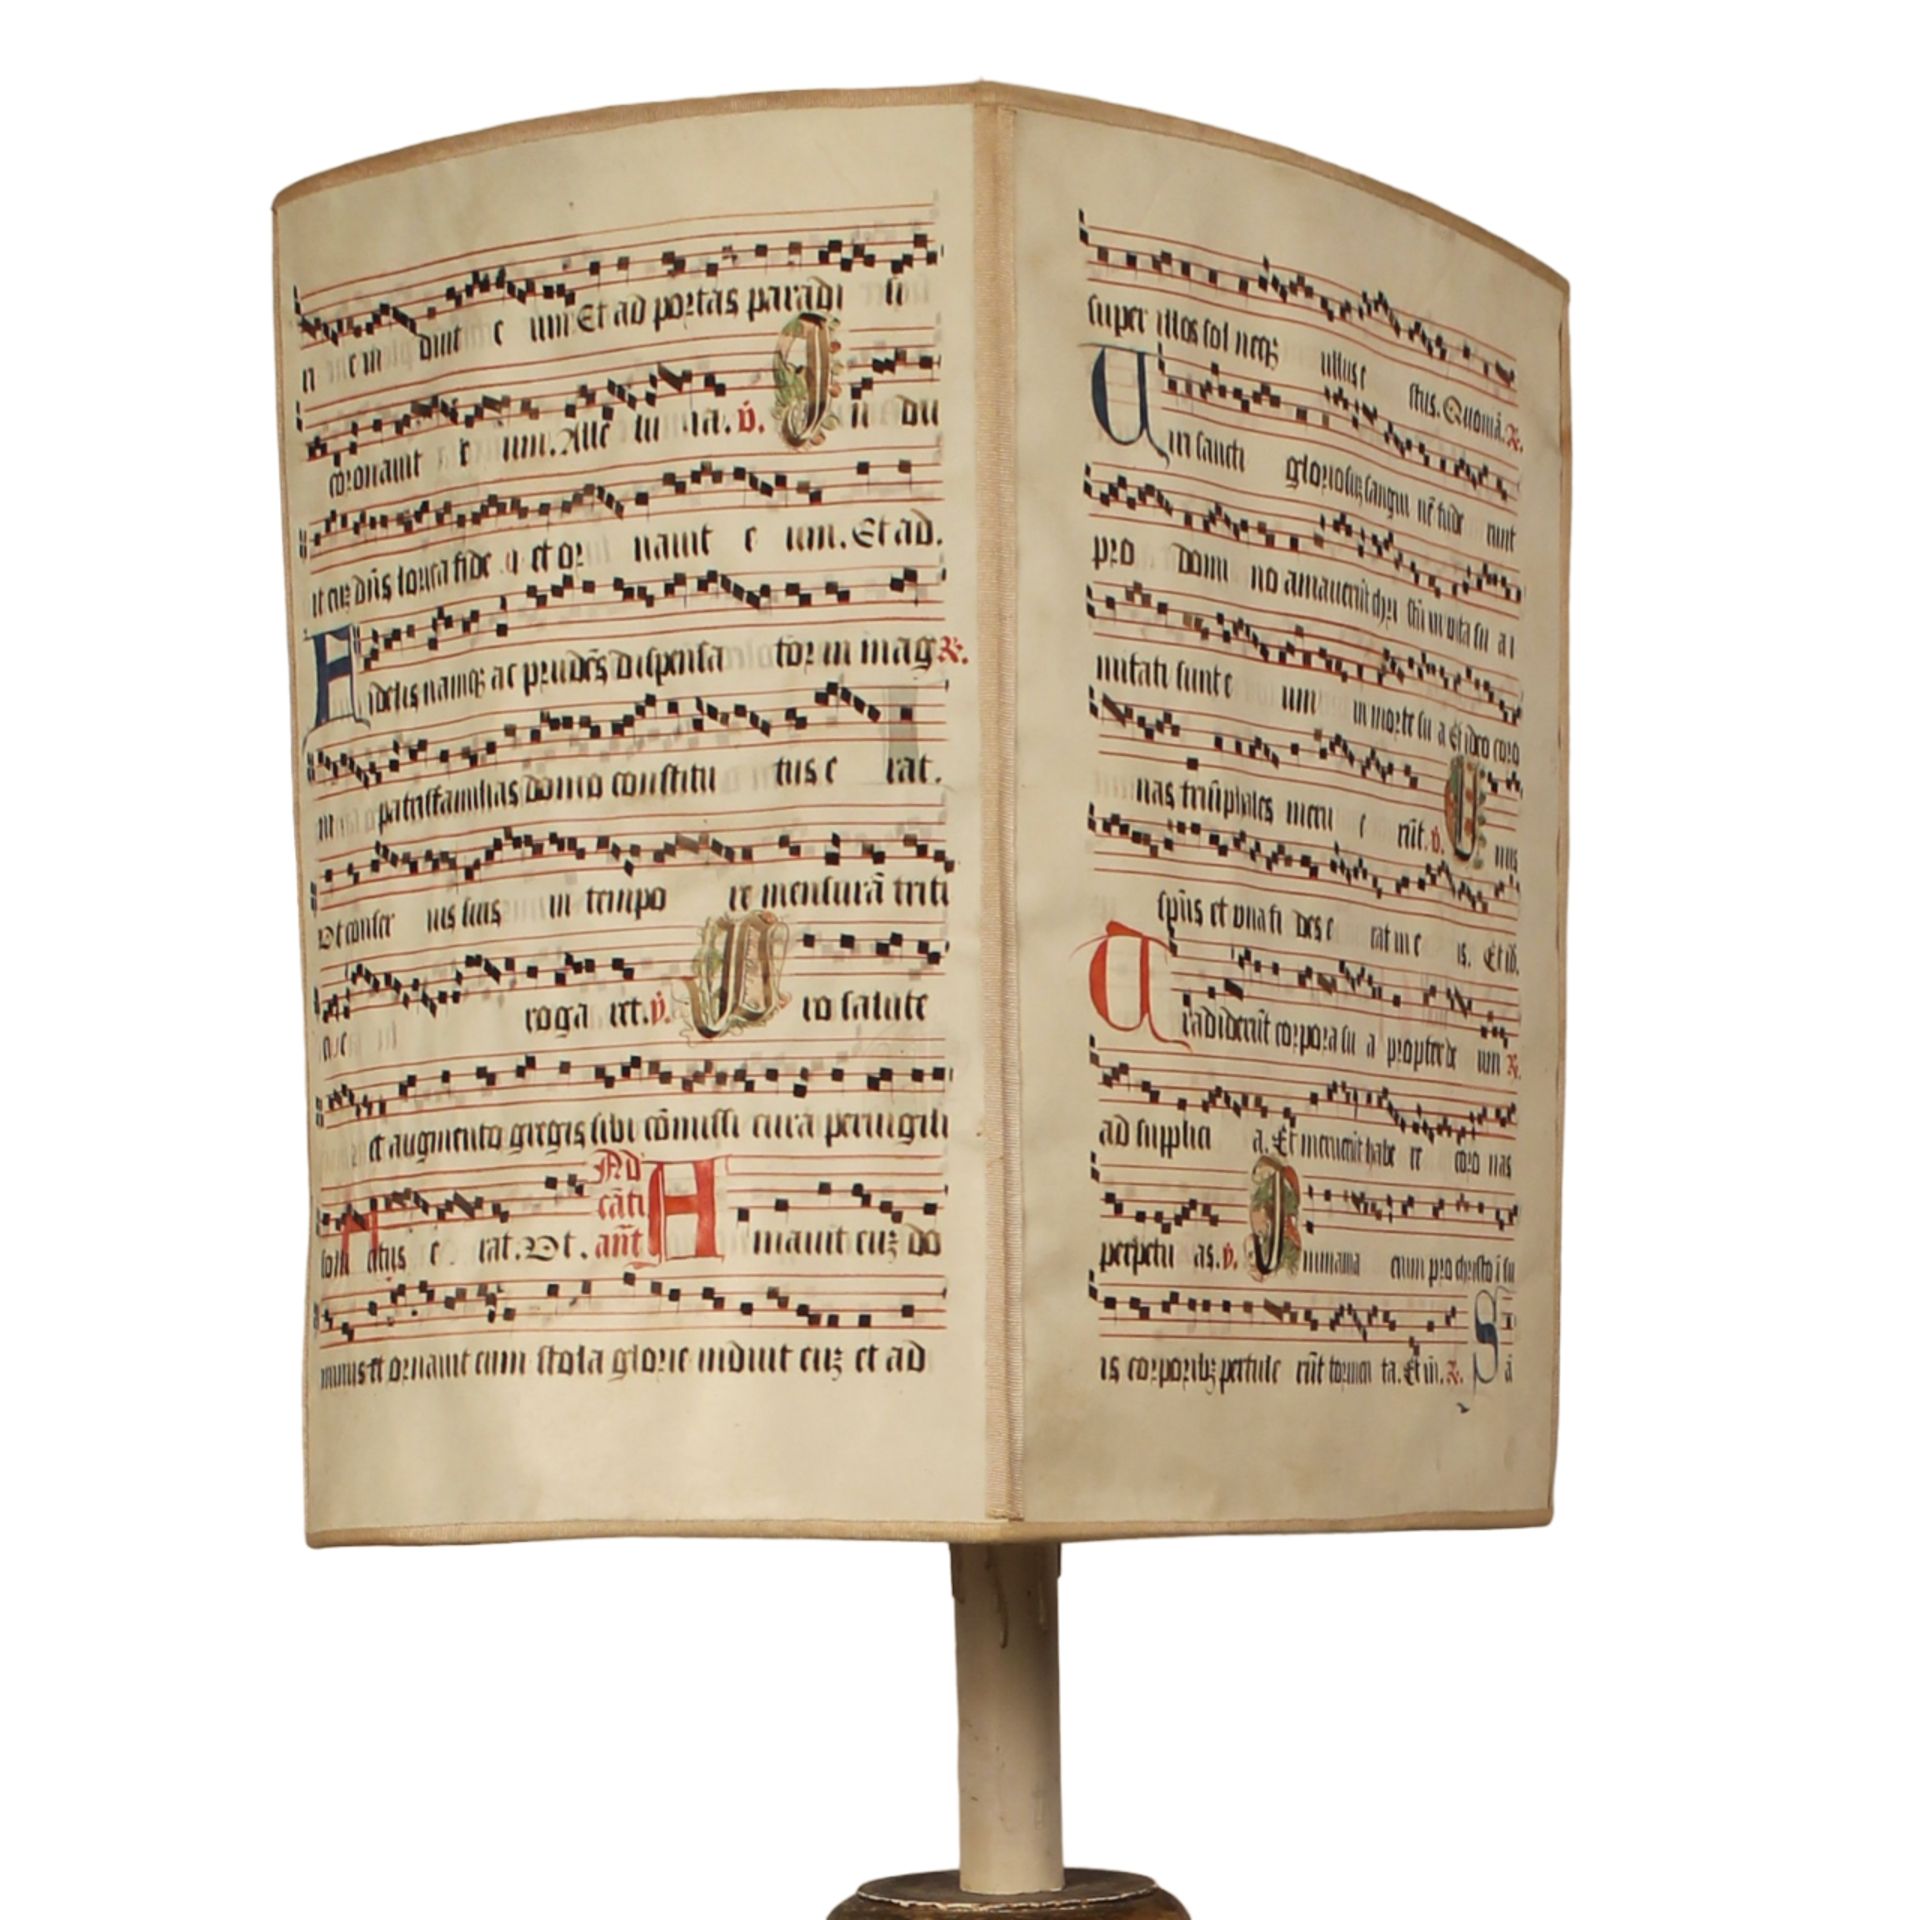 e in duit e um Et ad portas paradi si
coronauit e um. Alle lu ia. v̄. I n du
it euȝ dn̄s lorica fide i et or nauit e um. Et ad.
F idelis namqȝ ac prudēs dispensa tor in mag ℟.
ni patrisfamilias domo constitu tus e rat.
Vt conser uis suis in tempo re mensurā triti
roga ret. v̄. P ro salute
et augmento gregis sibi cōmissi curā peruigili
Ad
cāti
solli citus e rat. Vt. ant̄ A mauit euȝ do
minus et ornauit eum stola glorie induit euȝ et ad
super illos sol neqȝ ullus e stus. Quoniā. ℟.
V iri sancti gloriosuȝ sangui nē fude runt
pro domi no amauerūt chri stū in uita su a i
mitati sunt e um in morte su a Et ideo coro
nas triūphales meru e rūt. v̄. U nus
spūs et una fi des e rat in e is. Et id.
T radiderūt corpora su a propter de um ℟.
ad supplici a. Et meruerūt habe re coro nas
perpetu as. v̄. I nmania enim pro christo i su
is corporibȝ pertule rūt tormen ta. Et m̄. ℟. S ā